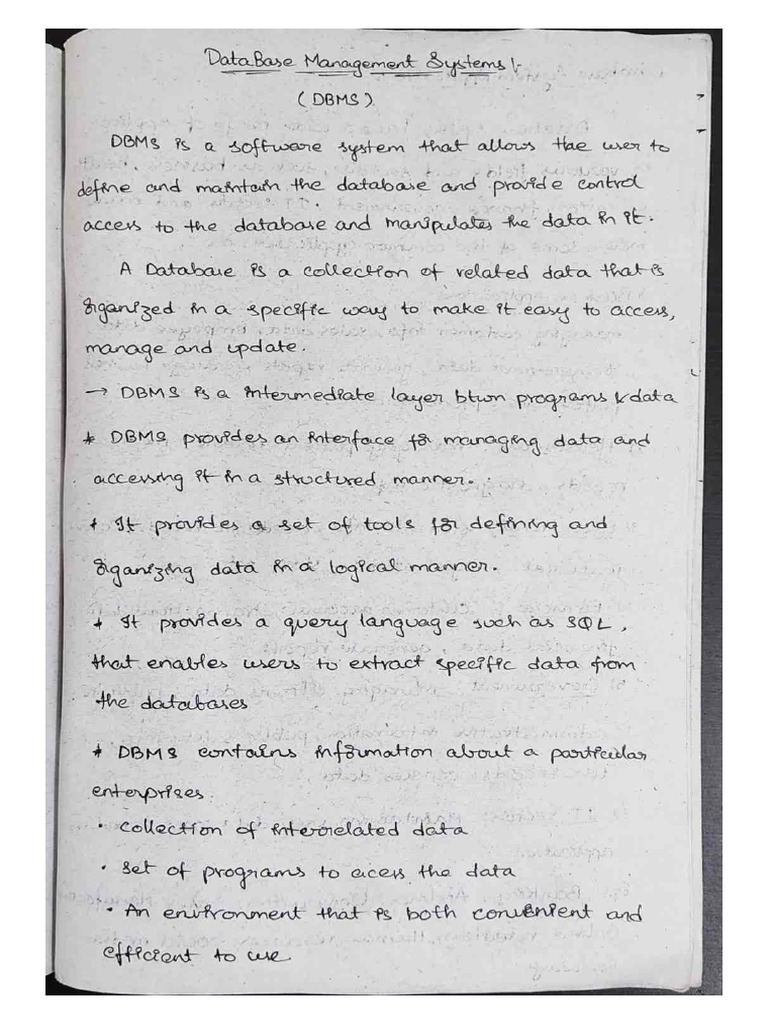 DataBase Management Systems:-
(DBMS)
DBMS is a software system that allows the user to
define and maintain the database and provide control
access to the database and manipulates the data in it.
A Database is a collection of related data that is
organized in a specific way to make it easy to access,
manage and update.
→ DBMS is a intermediate layer btwn programs & data
* DBMS provides an interface for managing data and
accessing it in a structured manner.
* It provides a set of tools for defining and
organizing data in a logical manner.
* It provides a query language such as SQL,
that enables users to extract specific data from
the databases
* DBMS contains information about a particular
enterprises.
• collection of interrelated data
• set of programs to acess the data
• An environment that is both convenient and
efficient to use